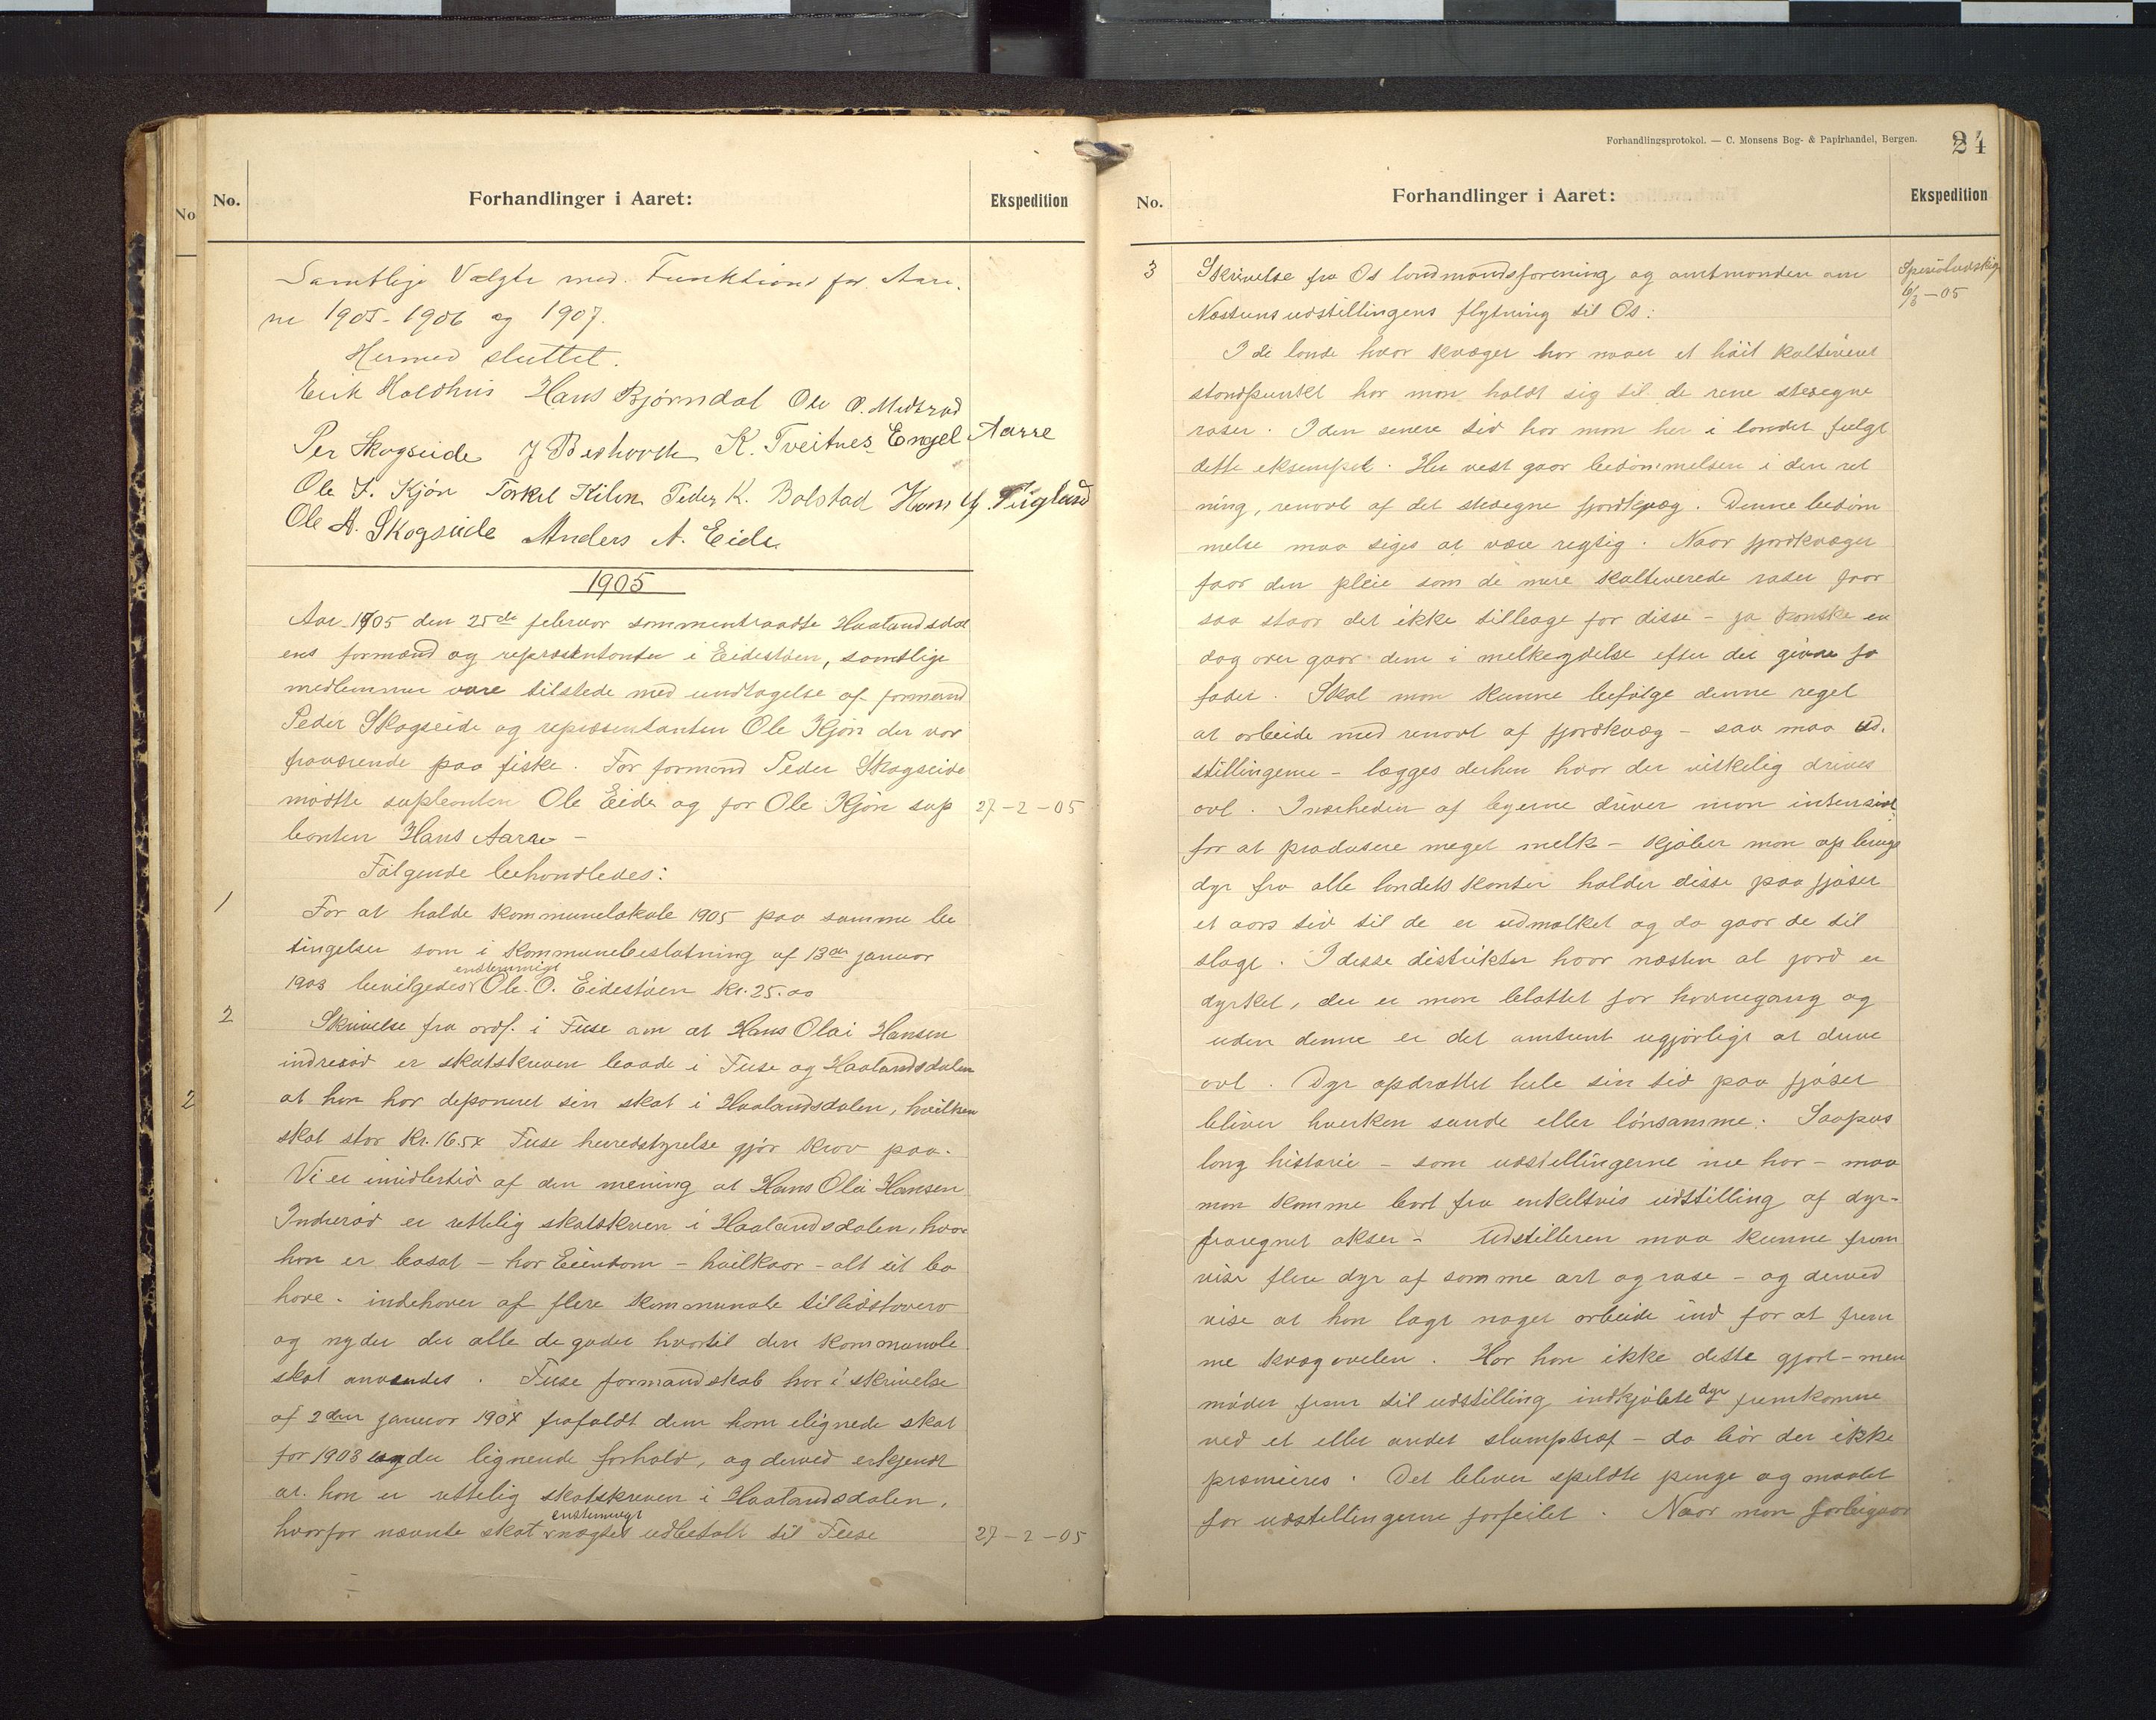 No
No.
Forhandlinger i Aaret:
Ekspedition
Samtlige Valgte med Funktions for Aare.
ne 1905-1906 og 1907.
Hermed sluttet.
Erik Holdhus Hans Bjørndal Ole O. Midtrød
Per Skogseide K. Tveitnes Engel Aarre
Ole J. Kjön Torkel Kilen Peder K. Bolstad Hans
Ole A. Skogseide Anders A. Eide
1905
Aar 1905 den 25de februar sammentraadte Haalandsdal
ens formænd og repræsentanter i Eidestöen, samtlige
medlemmer vare tilstede med undtagelse af formand
Peder Skogseide og repræsentanten Ole Kjön der var
fraværende paa fiske. For formand Peder Skogseide
mödte supleanten Ole Eide og for Ole Kjön sup 27-2-05
leanten Hans Aarre -
Fölgende behandledes:
1 For at holde kommunelokale 1905 paa samme be
tingelser som i kommunebeslutning af 13de januar
1903 bevilgedes enstemmigt Ole O. Eidestöen kr. 25.00
2 Skrivelse fra ordf. i Fuse om at Hans Olai Hansen
indreröd er skatskreven baade i Fuse og Haalandsdalen
2 at han har deponeret sin skat i Haalandsdalen, hvilken
skat stor kr. 16.54 Fuse herredstyrelse gjör krav paa.
Vi er imidlertid af den mening at Hans Olai Hansen
Indreröd er rettelig skatskreven i Haalandsdalen, hvor
han er bosat - har Eiendom - hvilkaar - alt sit bo
have - indehaver af flere kommunale tillidshverv
og nyder der alle de goder hvortil den kommunale
skat anvendes. Fuse formandskab har i skrivelse
af 2den januar 1904 frafaldt dem ham elignede skat
for 1903 under lignende forhold, og derved erkjendt
at han er rettelig skatskreven i Haalandsdalen,
hvorfor nævnte skat enstemmigt nægtes udbetalt til Fuse 27-2-05
Forhandlingsprotokol. — C. Monsens Bog- & Papirhandel, Bergen.
24
No.
Forhandlinger i Aaret:
Ekspedition
3 Skrivelse fra Os landmandsforening og amtmanden om
6/3-05
Nestunsudstillingens flytning til Os:
I de lande hvor kvæget har naaet et höit kultiveret
standpunkt har man holdt sig til de rene stedegne
raser. I den senere tid har man her i landet fulgt
dette eksempel. Her vest gaar bedömmelsen i den ret
ning, renavl af det stedegne fjordkvæg. Denne bedöm
melse maa siges at være regtig. Naar fjordkvæget
faar den pleie som de mere kultiverede raser faar
saa staar det ikke tilbage for disse - ja kanske en
dog over gaar dem i melkeydelse efter det givne fo
foder. Skal man kunne befölge denne regel
at arbeide med renavl af fjordkvæg - saa maa ud.
stillingerne - lægges derhen hvor der virkelig drives
avl. I nærheden af byerne driver man intensivt
for at produsere meget melk - kjöber man op unge
dyr fra alle landets kanter holder disse paa fjöset
et aars tid til de er udmalket og da gaar de til
slagt. I disse distrikter hvor næsten al jord er
dyrket, der er man blottet for havnegang og
uden denne er det omtrent ugjörligt at drive
avl. Dyr opdrættet hele sin tid paa fjöset
bliver hverken sunde eller lönsamme. Saapas
lang historie - som udstillingerne nu har - maa
man komme bort fra enkeltvis udstilling af dyr-
fraregnet okser - Udstilleren maa kunne frem
vise flere dyr af samme art og rase - og derved
vise at han lagt noget arbeide ind for at frem
me kvægavelen. Har han ikke dette gjort - men
möder frem til udstilling indkjöbte dyr fremkomne
ved et eller andet slumptræf - da bör der ikke
præmieres. Det bliver spildte penge og maalet
for udstillingerne forfeilet. Naar man forbigaar